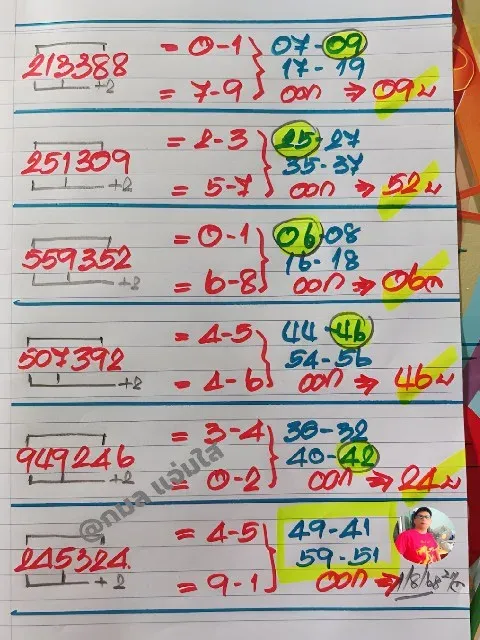 213388 = 0-1 } 07-09
17-19
+2 = 7-9 ออก ⇒ 09บ
251309 = 2-3 } 25-27
35-37
+2 = 5-7 ออก ⇒ 52บ
559352 = 0-1 } 06-08
16-18
+2 = 6-8 ออก ⇒ 06ล
507392 = 4-5 } 44-46
54-56
+2 = 4-6 ออก ⇒ 46บ
949246 = 3-4 } 30-32
40-42
+2 = 0-2 ออก ⇒ 24บ
@กชล แจ่มใส
245324. = 4-5 } 49-41
59-51
+2 = 9-1 ออก ⇒ 1/8/68